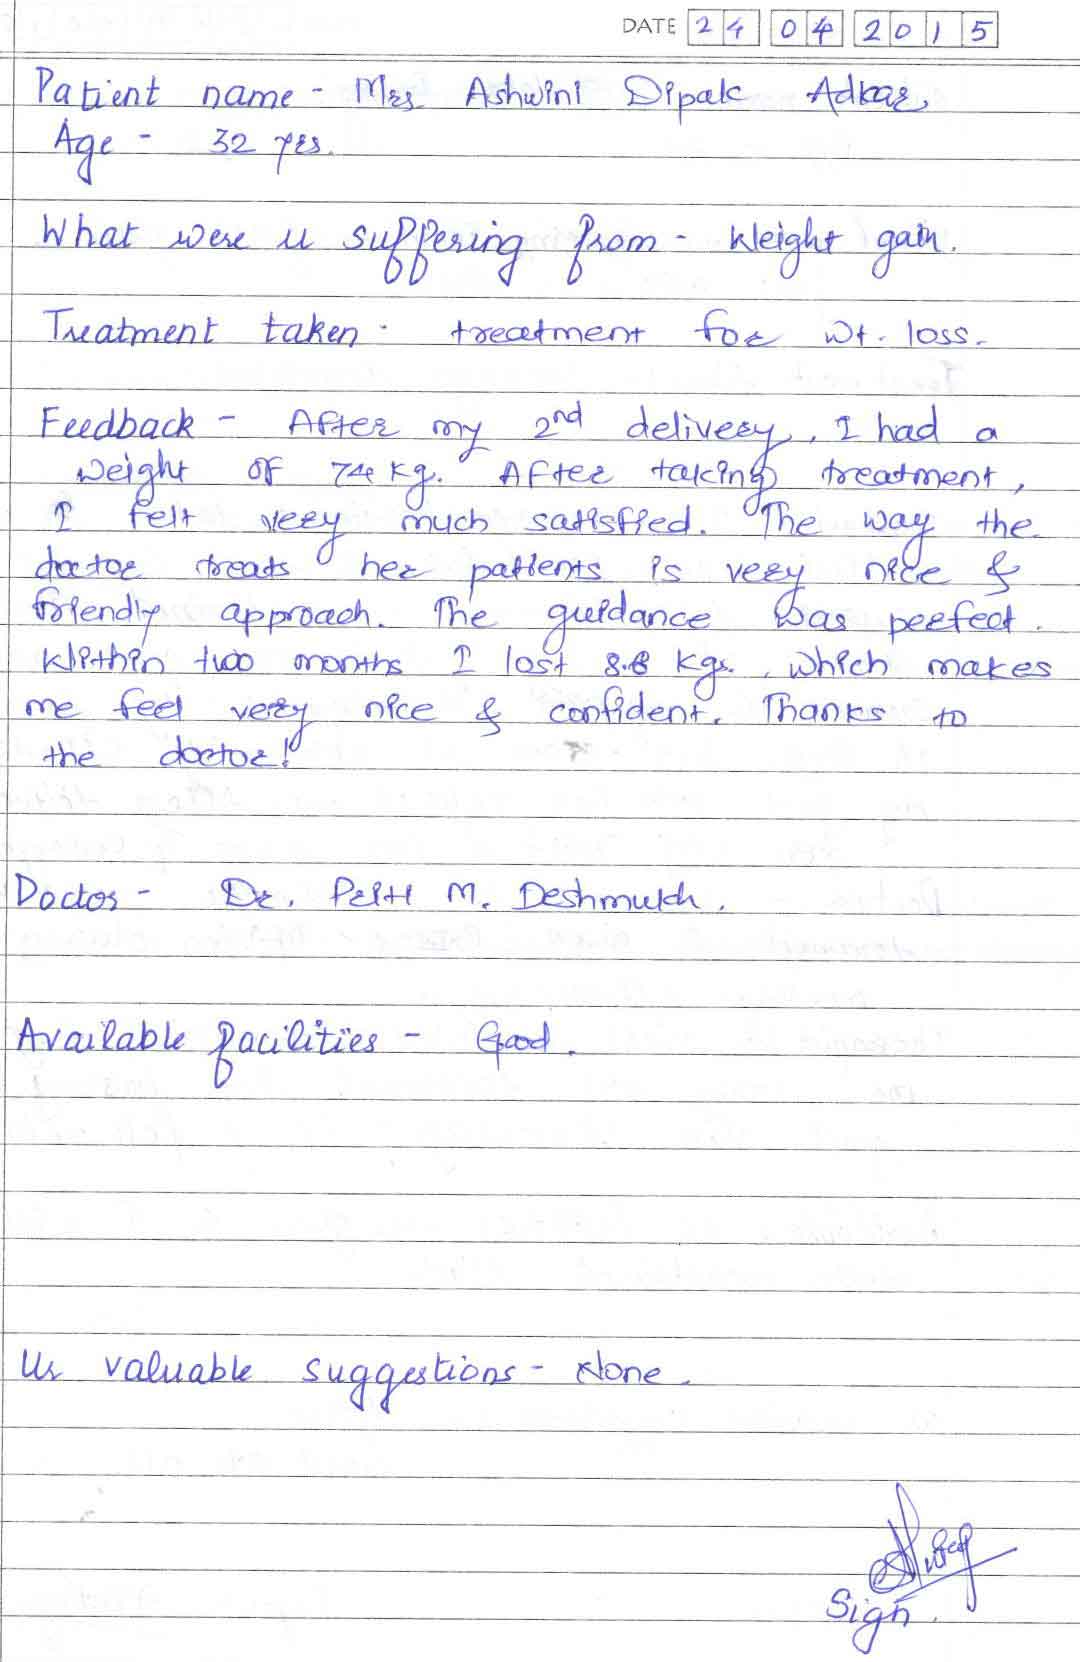 DATE 24 04 2015
Patient name - Mrs. Ashwini Dipak Adkar,
Age - 32 yrs.
What were u suffering from - Weight gain.
Treatment taken - treatment for wt. loss.
Feedback - After my 2nd delivery, I had a
weight of 74 kg. After taking treatment,
I felt very much satisfied. The way the
doctor treats her patients is very nice &
friendly approach. The guidance was perfect.
Within two months I lost kgs., which makes
me feel very nice & confident. Thanks to
the doctor!
Doctor - Dr. Priti M. Deshmukh.
Available facilities - Good.
Ur valuable suggestions - None.
Sign.